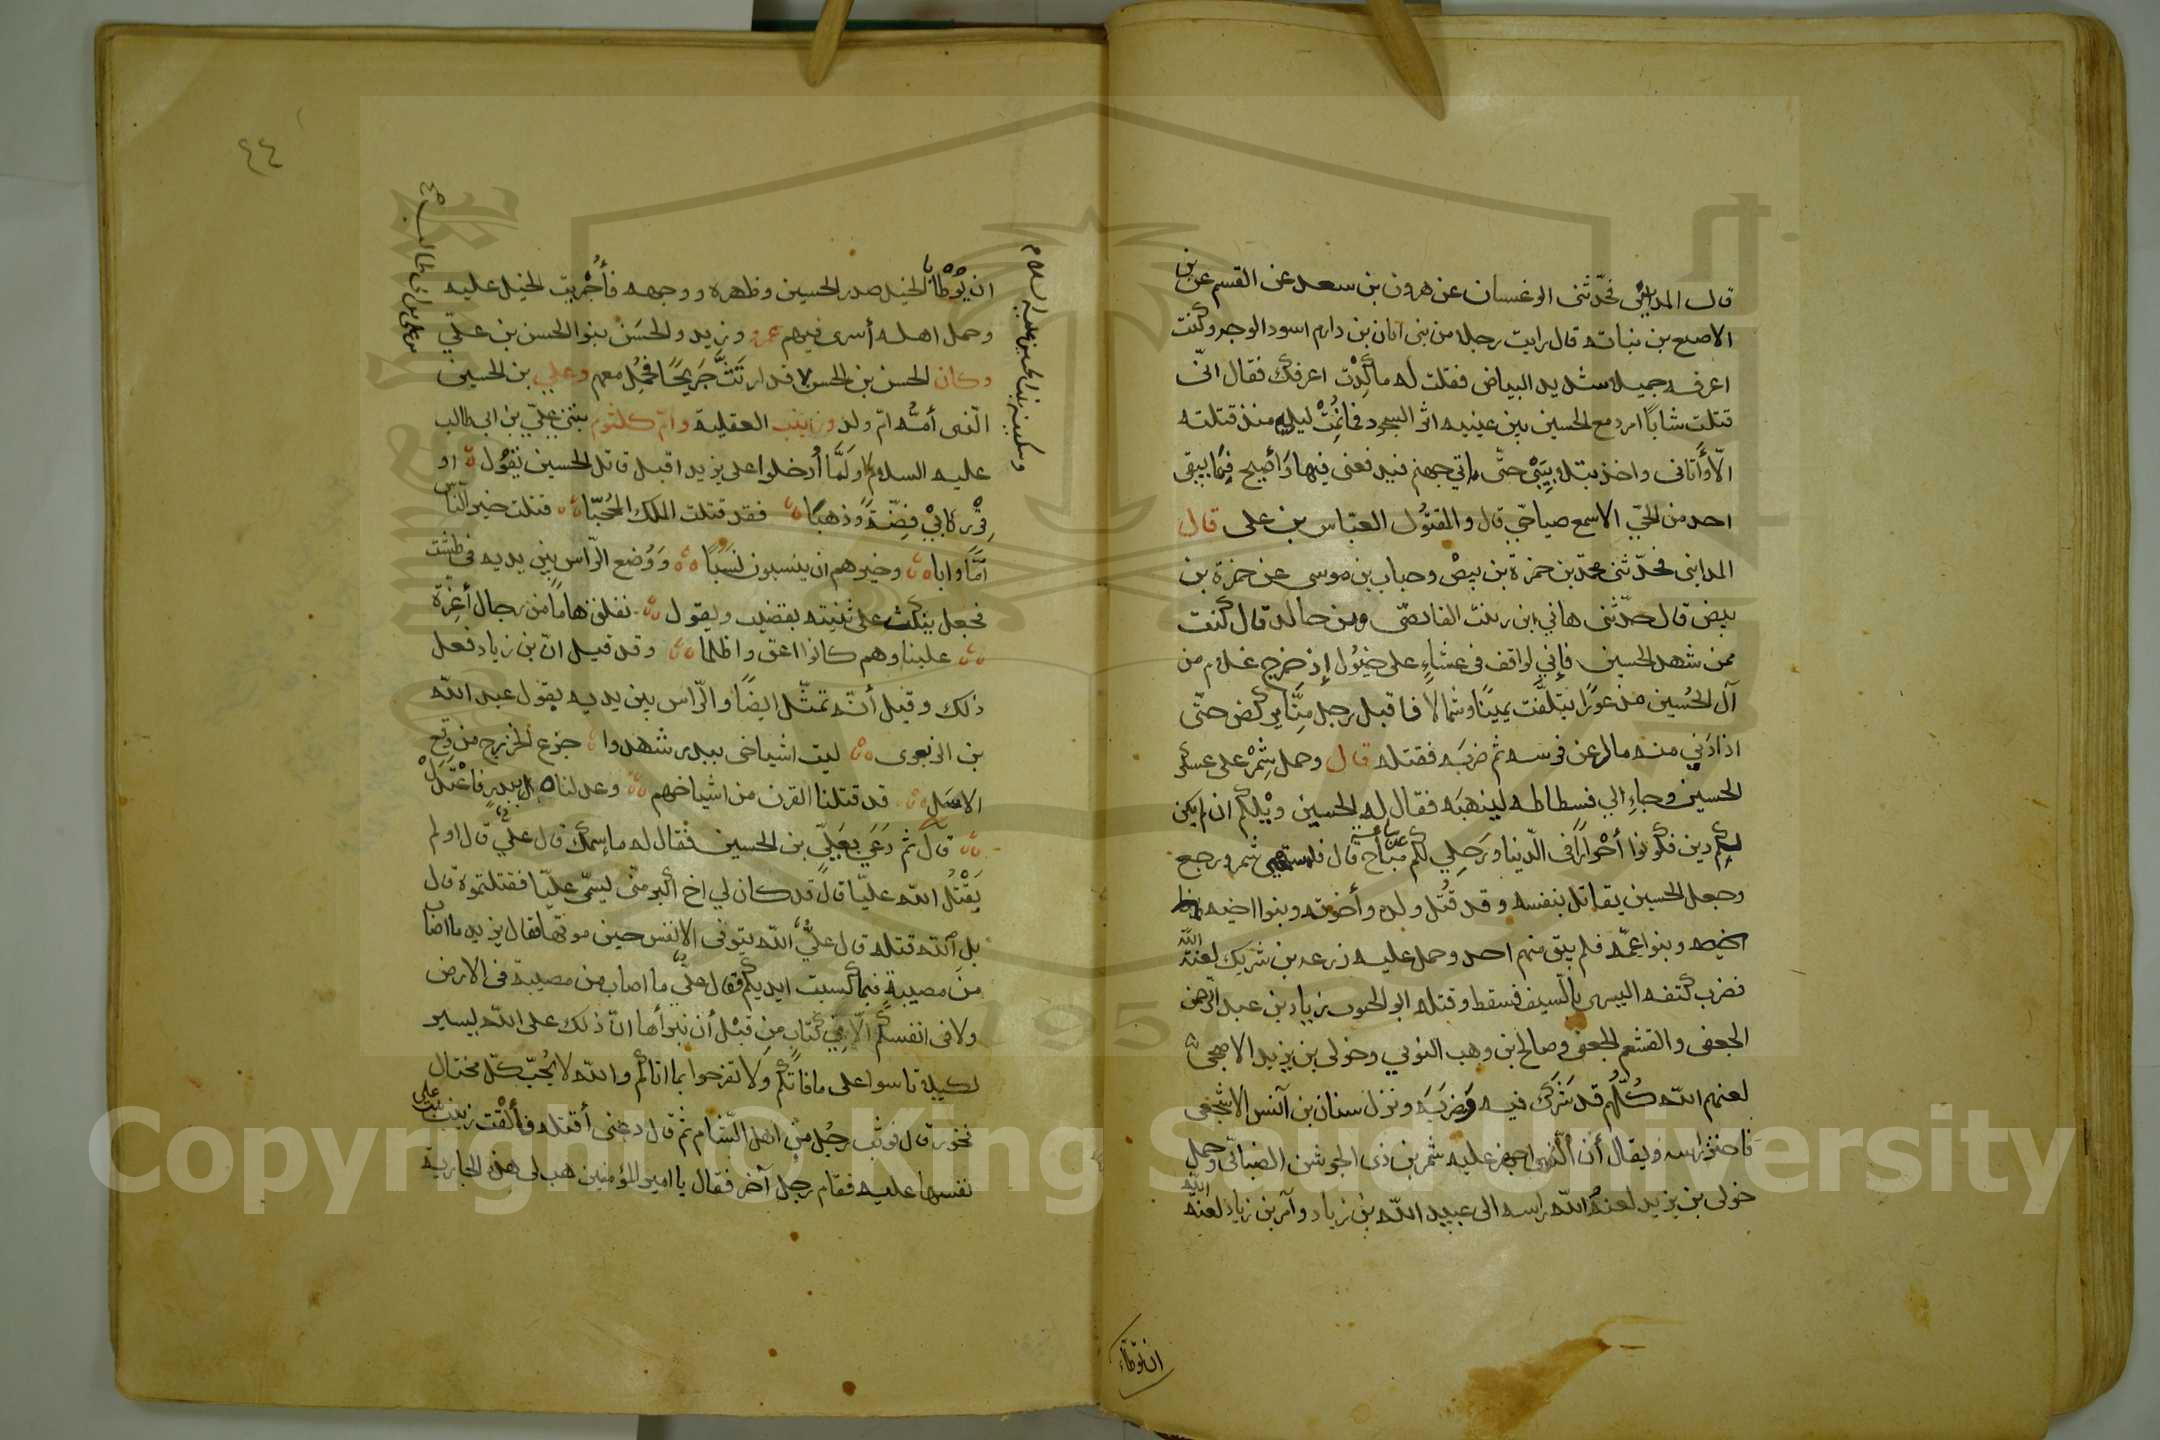 قال المدايني فحدثنى ابو غسان عن هرون بن سعد عن القسم عن بن
الاصبع بن نباته قال رايت رجلا من بنى ابان بن دارم اسود الوجه وكنت
اعرفه جميلا شديد البياض فقلت له ما كِدْت اعرفك فقال انّى
قتلت شابًا امرد مع الحسين بين عينيه اثر السجود فما نمْتُ ليله منذ قتلته
الّا وأتانى واخذ بتلبيبَىْ حتّى ياتي جهنم فيدفعنى فيها وأصيح فما يبقى
احد من الحىّ الا سمع صياحي قال والمقتول العبّاس بن على قال
المدائنى فحدّثنى محمد بن حمزة بن بيض وحباب بن موسى عن حمزة بن
بيض قال حدّثنى هاني ابن القايضى زمن خالد قال كنت
ممن شهد الحسين فإني لواقف فى على خيول إذ خرج غلام من
آل الحُسين مذعورًا يتلفّت يمينًا وشمالا فاقبل رجل منّا يركض حتّى
اذا دَني منه مال عن فرسه ثم ضربَه فقتله قال وحمل شِمْر على عسكر
الحسين وجاءِ الي فسطاطه لينهبَه فقال له الحسين ويْلكم ان لم يكن
لكم دين فكونوا أحْرارًا فى الدّنيا ورَحلِي لكم عن ساعة مبَاح قال فاستحيى شمر ورجع
وجعل الحسين يقاتل بنفسه وقد قُتل ولده وأخوته وبنوا اخيه
وبنوا عمّه فلم يبق منهم احد وحمل عليه زرعه بن شريك لعنه الله
فضرب كتفه اليسرى بالسيف فسقط وقتله ابو الحنوب زياد بن عبد الرّحمن
الجعفى والقشعم الجعفى وصالح بن وهب وخولى بن يزيد الاصبحى
لعنهم الله كلّهم قد شَرَك فيه وضربَه ونزل سنان بن آنس الاشجعى
فاحتزّ راسه ويقال أن الّذى اجهز عليه شمر بن ذى الجوشن الضبائى وحمل
خولى بن يزيد لعنهُ الله راسه الى عبيد الله بن زياد وآمر بن زياد لعنه الله
ان يوطأ
٤٤
ان يُوْطَأ الخيل صدر الحسين وظهره ووجهه فأُجْريت الخيل عليه
وحمل اهله أسرى فيهم عمرو وزيد والحسَن بنوا الحسن بن علىّ
وكان الحسن بن الحسن قد ارتَثَّ جَريحًا فحُمِل معهم وعلي بن الحسين
الّذى أمُّه امّ ولد وزينب العقليه وامّ كلثوم بنتى علىّ بن ابى طالب
وسكينة بنت الحسين عليه السلام
عليه السلام ولَمّا أُدخلوا على يزيد اقبل قاتل الحسين يقُول او
قِرْ ركابىْ فِضّةً وذهبًا فقد قتلت الملك المُحَجّبا قتلت خير النّاس
امّاً وابا وخيرهم ان ينسبون نسَبًا وَوُضع الرّاس بين يديه فى طشت
فجعل ينكث على ثنيته بقضيب ويقول نفلق هامًا من رجال أعِزّة
علينا وهم كانوا اعق واظلما وقد قيل انّ بن زياد فعل
ذلك وقيل أنّه تمثّل ايضًا والرّاس بين يديه بقول عبد الله
بن الزبعرى ليت اشياخى ببدر شهدوا جزع الخزرج من وقع
الاسل قد قتلنا القرن من اشياخهم وعدلناه ببدرٍ فاعْتدَلْ
قال ثم دَعَي بعَليّ بن الحسين فقال له ما اِسمك قال عليّ قال اولم
يَقْتُل الله عليّا قال قد كان لي اخ أكبر منّى ليسمّى عليّا فقتلتموه قال
بل الله قتله قال عليُّ الله يتوفى الانفس حين موتها فقال يزيد ما اصاب
من مصيبة فبما كسبت ايديكم فقال عليّ ما اصاب من مصيبة فى الارض
ولا فى انفسكم الّا فِي كتابٍ من قبْل أن نبرأها انّ ذلك على الله يسير
لكيلا تاسوا على ما فاتكُم ولا تفرحوا بما اتاكم والله لا يُحِبّ كلّ مختال
فخور قال فوثب رجُل من اهل الشّام ثم قال دعنى أقتله فألقْت زينب بنت على
نفسها عليه فقام رجُل آخر فقال يا امير المؤمنين هب لى هذه الجارية